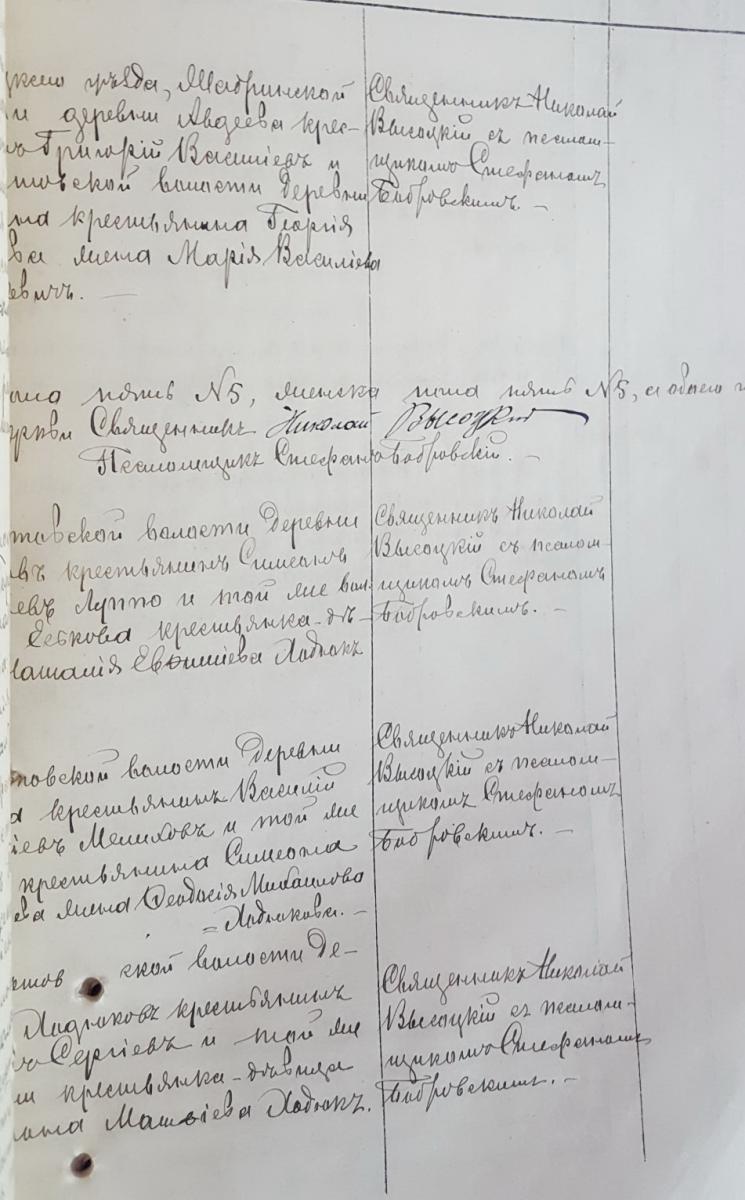 уезда, Шавринской
и деревни Авдеева крес-
ъ Григорій Василіевъ и
товской волости деревни
на крестьянина Георгія
ва жена Марія Василіева
евичъ. —
Священникъ Николай
Высоцкій съ псалом-
щикомъ Стефаномъ
Бобровскимъ. —
пять №5, женска пола пять №5, а обоего
церкви Священникъ Николай Высоцкій
Псаломщикъ Стефанъ Бобровскій. —
товской волости деревни
въ крестьянинъ Симеонъ
евъ Луппо и той же вол.
крестьянка-дѣ-
Евфиміева Ходюкъ
Священникъ Николай
Высоцкій съ псалом-
щикомъ Стефаномъ
Бобровскимъ. —
товской волости деревни
а крестьянинъ Василій
іевъ Мелиховъ и той же
крестьянина Симеона
ева жена Ѳеодосія Михаилова
= Ходюкова. —
Священникъ Николай
Высоцкій съ псалом-
щикомъ Стефаномъ
Бобровскимъ. —
тов ской волости де-
крестьянинъ
ъ Сергіевъ и той же
и крестьянка-дѣвица
Матѳіева Ходюкъ.
Священникъ Николай
Высоцкій съ псалом-
щикомъ Стефаномъ
Бобровскимъ. —